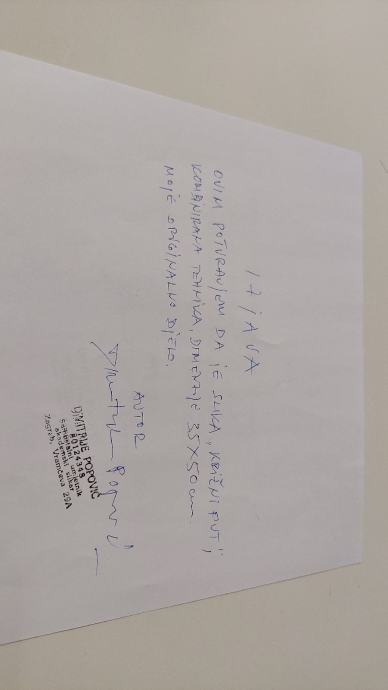 IZJAVA
OVIM POTVRAĐUJEM DA JE SLIKA "KRIŽNI PUT",
KOMBINIRANA TEHNIKA, DIMENZIJE 35X50cm
MOJE ORIGINALNO DJELO.
AUTOR
Dimitrije Popović
DIMITRIJE POPOVIĆ
80124348
samostalni umjetnik
akademski slikar
Zagreb, Vramčeva 29A